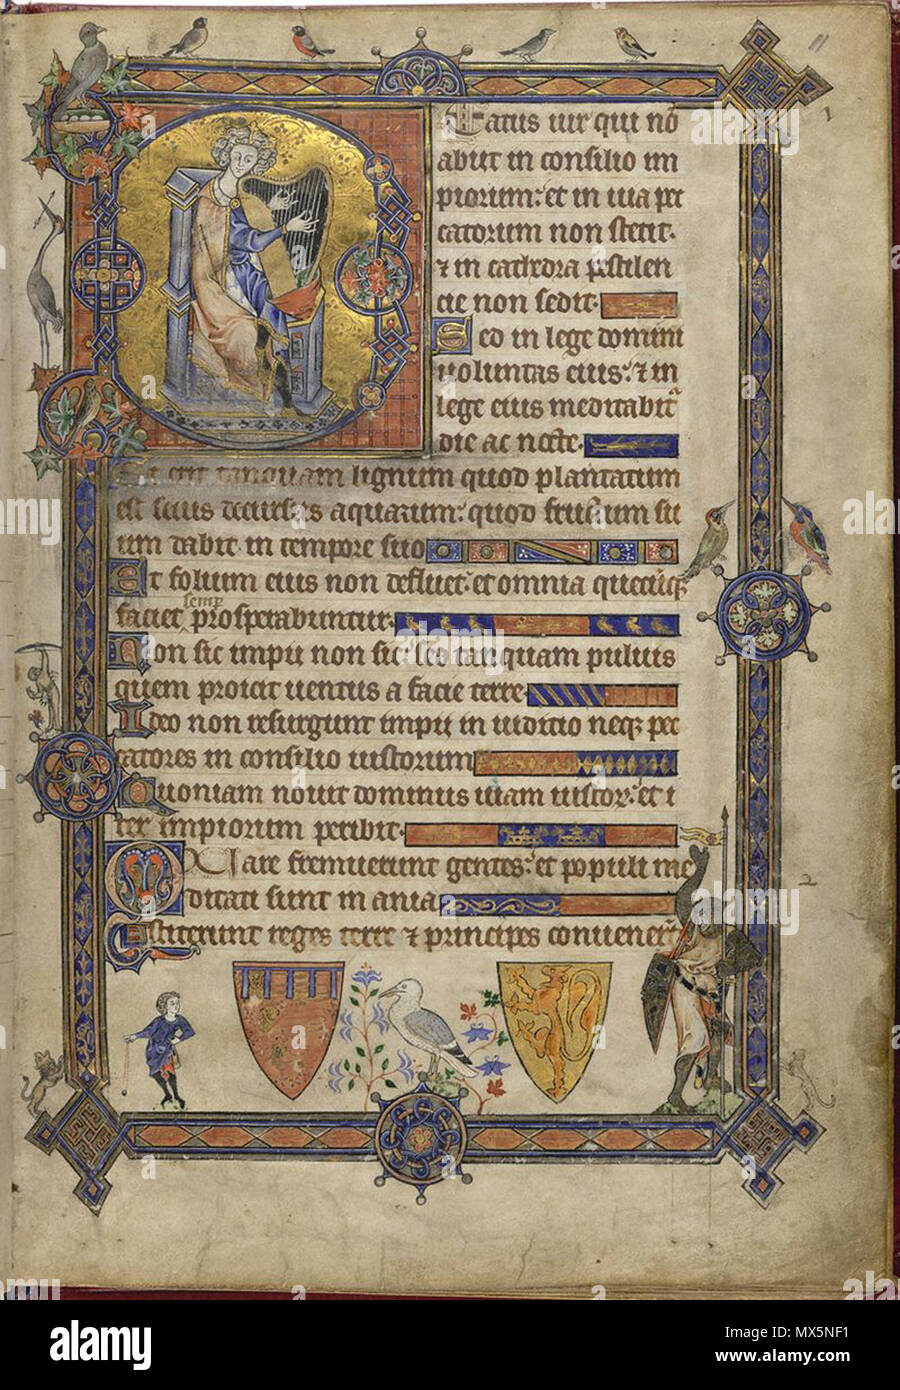 11
1
Eatus uir qui nō
abiit in consilio im
piorum: et in uia pec
catorum non stetit·
⁊ in cathedra pestilen
cie non sedit·
Sed in lege domini
uoluntas eius: ⁊ in
lege eius meditabit᷑
die ac nocte·
Et erit tanquam lignum quod plantatum
est secus decursus aquarum: quod fructum su
um dabit in tempore suo
Et folium eius non defluet: et omnia quecūq
semp
faciet prosperabuntur·
Non sic impii non sic: sed tanquam puluis
quem proicit uentus a facie terre
Ideo non resurgunt impii in iudicio neq pec
catores in consilio iustorum
Quoniam nouit dominus uiam iustoꝝ: et i
ter impiorum peribit·
Quare fremuerunt gentes: et populi me
ditati sunt inania
2
Astiterunt reges terre ⁊ principes conuenerūt
alamy
Image ID: MX5NF1
www.alamy.com